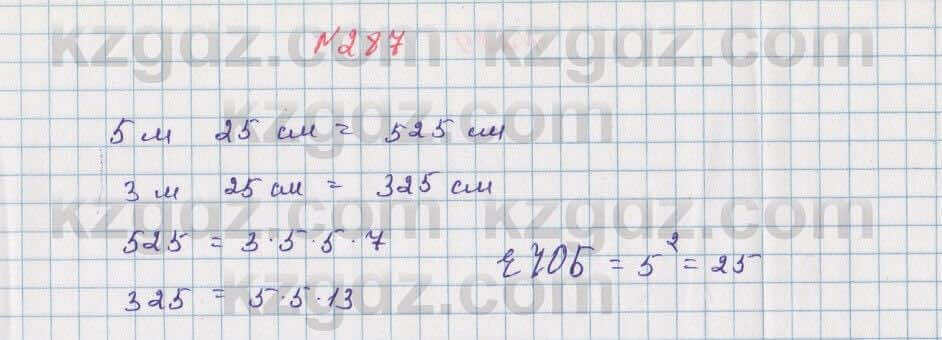 №287
5 м 25 см = 525 см
3 м 25 см = 325 см
525 = 3·5·5·7
325 = 5·5·13
ЕҮОБ = 5² = 25
kzgdz.com
kzgdz.com
kzgdz.com
kzgdz.com
kzgdz.com
kzgdz.com